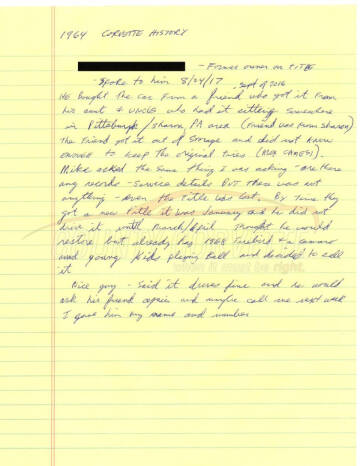 1964 CORVETTE HISTORY
- FORMER OWNER ON TITLE
- Spoke to him 8/24/17 - Sept of 2016
HE bought the car from a friend who got it from
his aunt & uncle who had it sitting somewhere
in Pittsburgh/Sharon, PA area (Friend was from Sharon)
The friend got it out of storage and did not know
enough to keep the original tires
Mike asked the same thing I was asking - are there
any records - service details BUT there was not
anything - even the title was lost. By time they
got a new title it was January and he did not
drive it until March/April thought he would
restore but already has 1968 Firebird & a camaro
and young kids playing Ball and decided to sell
it
Nice guy - Said it drives fine and he would
ask his friend again and maybe call me next week
I gave him my name and number
must be right.